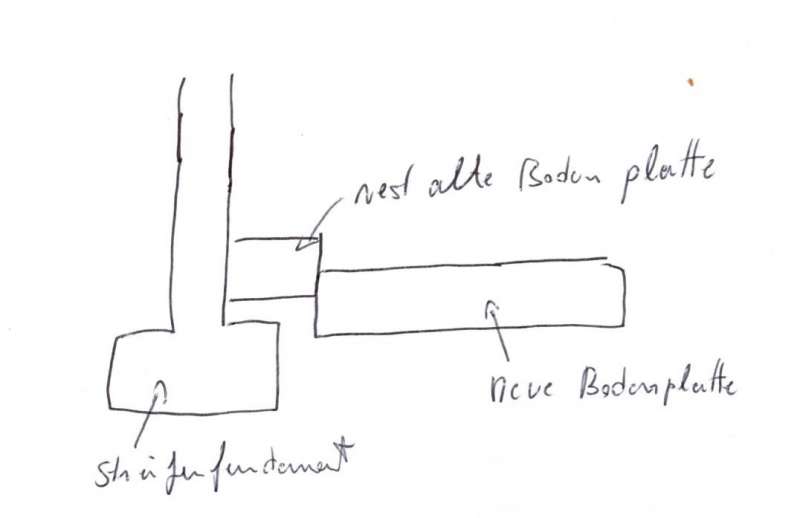 rest alte Boden platte
neue Bodenplatte
Streifenfundament